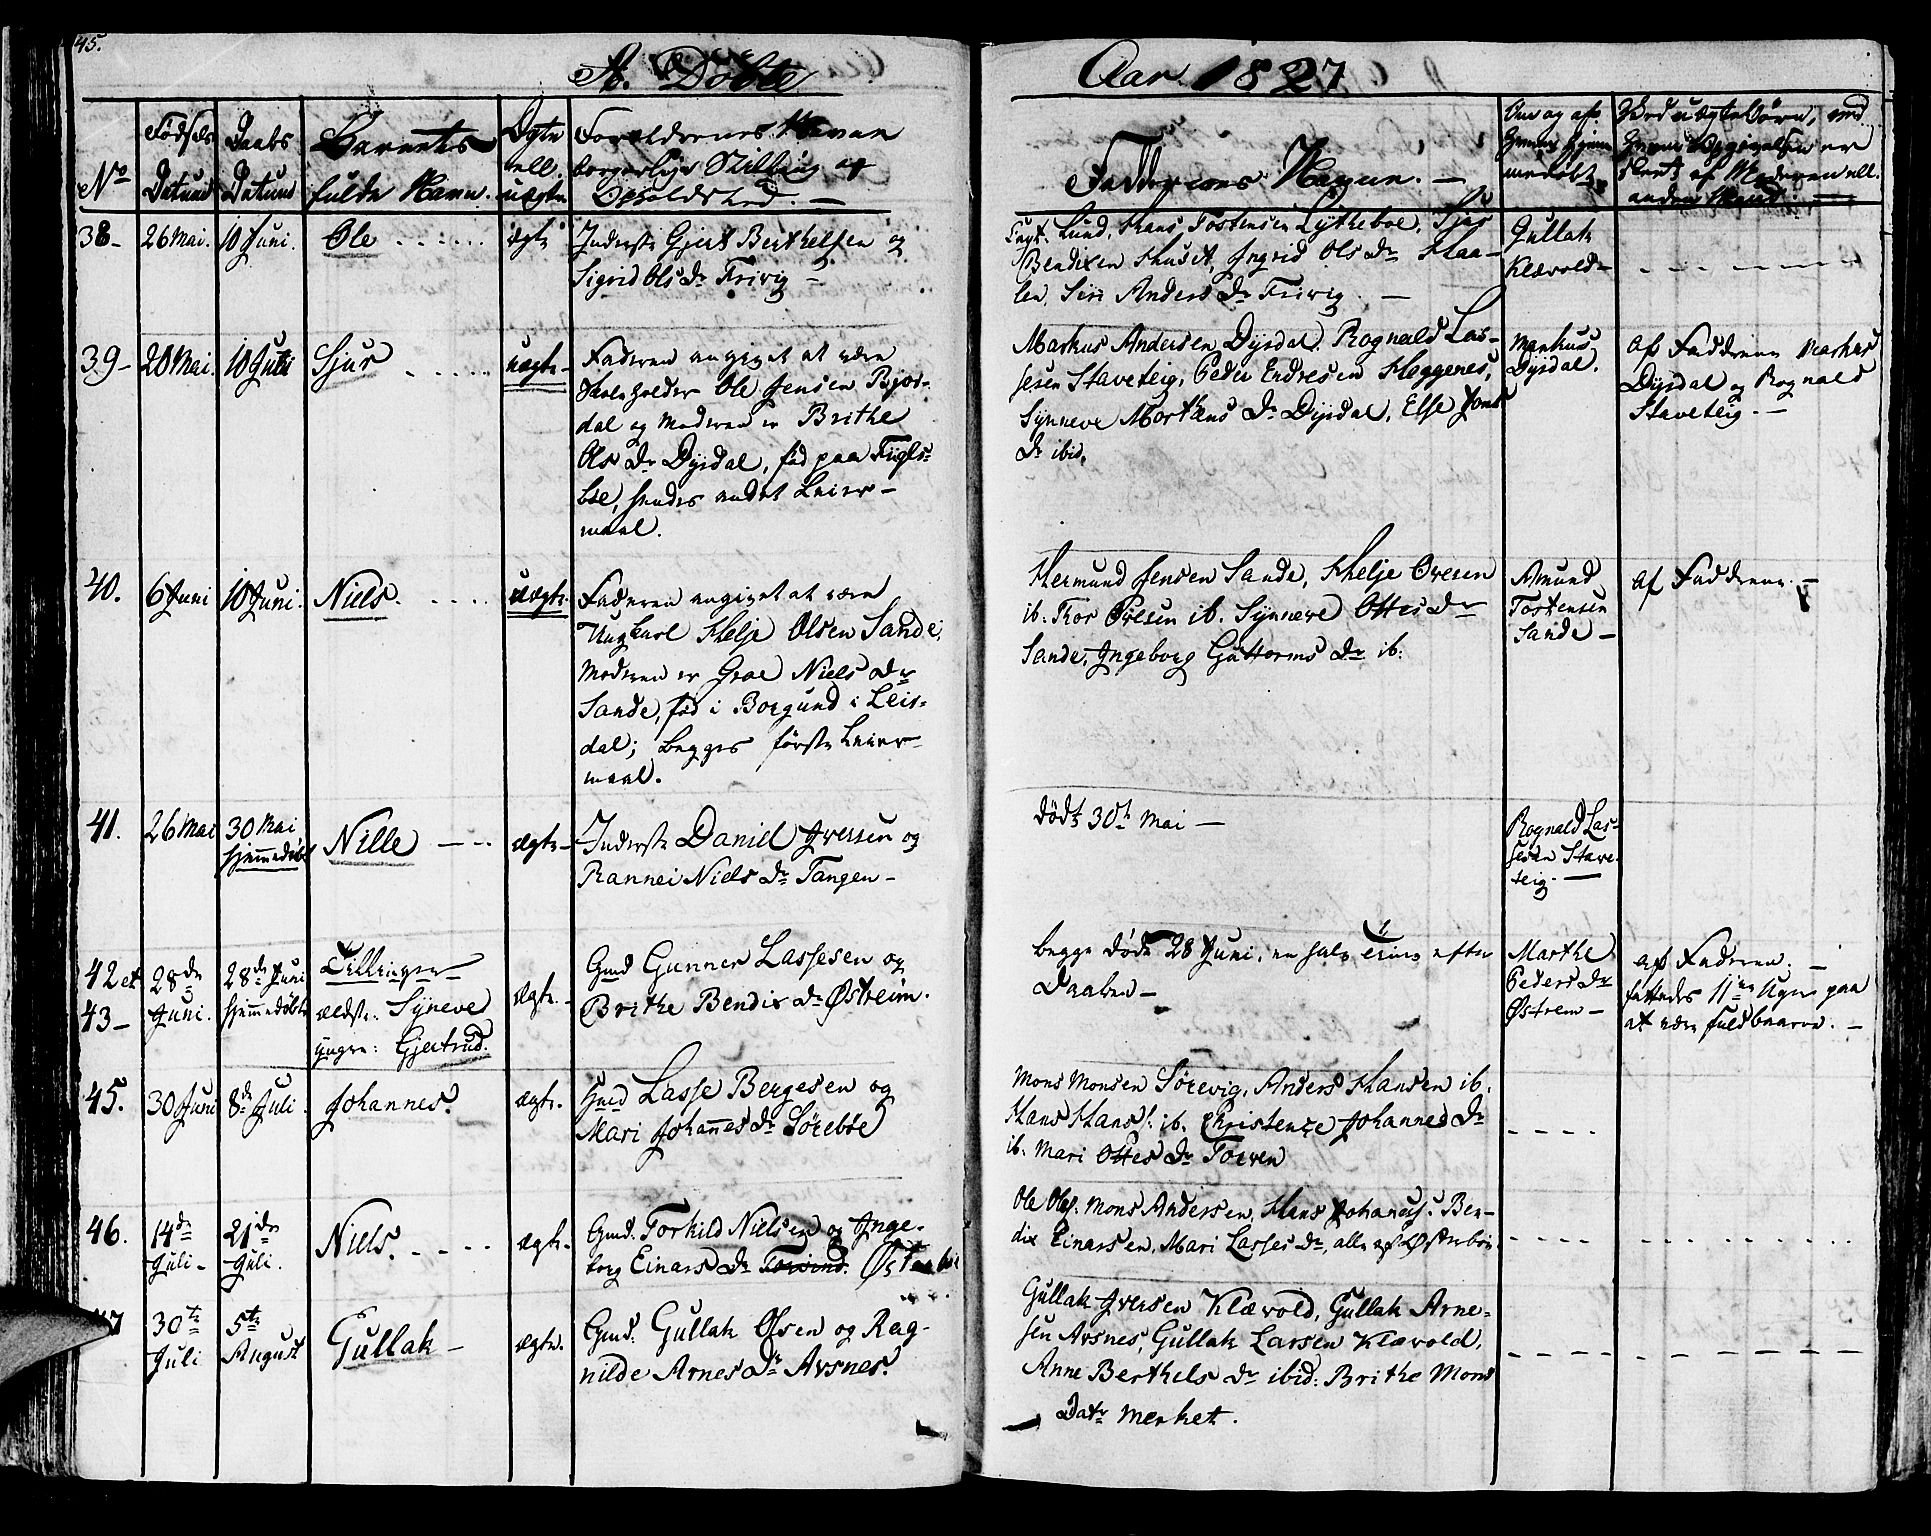 45.
A. Døbte
Aar 1827
No
Fødsels Datum
Daabs Datum
Barnets fulde Navn.
Ægte ell. uægte
Forældrenes Navn borgerlige Stilling og Opholdsted. —
Faddernes Navn. —
Om og af hvem hjemmedøbt
38-
26 Mai.
10 Juni.
Ole
ægte
Inderste Gjert Berthelsen og
Sigrid Ols Dr Trivig —
Lund, Hans Tostensen Lytteboe, Sjur
Bendixen Huuset, Ingrid Ols Dr Haa-
len, Siri Anders Dr Trivig. —
Gullak
Klævold-
39-
20 Mai.
10 Juni
Sjur
uægte-
Faderen angivet at være
Skoleholder Ole Jensen Bjor-
dal og Moderen er Brithe
Ols Dr Dysdal, fød paa Fugls-
bøe, hendes andet Leier-
maal.
Markus Andersen Dysdal, Rognald Las-
sesen Staveteig, Peder Endresen Heggenes,
Synneve Morthens Dr Dysdal, Else Jons
Dr ibid.
Markus
Dysdal.
af Fadderne Markus
Dysdal og Rognald
Staveteig. —
40.
6 Juni
10 Juni.
Niels.
uægte.
Faderen angivet at være
Ungkarl Helje Olsen Sande,
Moderen er Groe Niels Dr
Sande, fød i Borgund i Leir-
dal; begges første Leier-
maal.
Hermund Jensen Sande, Helje Ovesen
ib. Thor Ovesen ib. Synneve Ottes Dr
Sande, Ingeborg Guttorms Dr ib.
Amund
Tostensen
Sande —
af Fadderne. —
41.
26 Mai
30 Mai
hjemmedøbt
Nille
ægte-
Inderste Daniel Iversen og
Rannei Niels Dr Tangen-
død 30te Mai —
Rognald Las-
sesen Stave-
teig. —
42 et
43-
28de
Juni.
28de Juni
hjemmedøbte
Tvillinger
ældste: Syneve
yngre: Gjertrud.
ægte.-
Gmd Gunner Lassesen og
Brithe Bendix Dr Østreim.
begge døde 28 Juni, en halv Time efter
Daaben —
Marthe
Peders Dr
Østrem —
af Faderen. —
fattedes 11 Uger paa
at være fuldbaarne. —
45.
30 Juni
8de Juli.
Johannes.
ægte.
Gmd Lasse Bergesen og
Mari Johannes Dr Sørebøe
Mons Monsen Sørevig, Anders Hansen ib.
Hans Hans. ib. Christence Johannes Dr
ib. Mari Ottes Dr Torven
46.
14de
Juli-
21de
Juli.
Niels.
ægte.
Gmd. Torkild Nielsen og Inge-
borg Einars Dr Torvund. Østerbøe
Ole Ols. Mons Andersen, Hans Johannes. Ben-
dix Einarsen, Mari Lasses Dr, alle af Østerbøe
47
30te
Juli
5te
August
Gullak —
ægte.
Gmd. Gullak Olsen og Rag-
nilde Arnes Dr Avsnes.
Gullak Iversen Klævold, Gullak Arne-
sen Avsnes, Gullak Larsen Klævold,
Anne Berthels Dr ibid: Brithe Mons
Datr Merket.